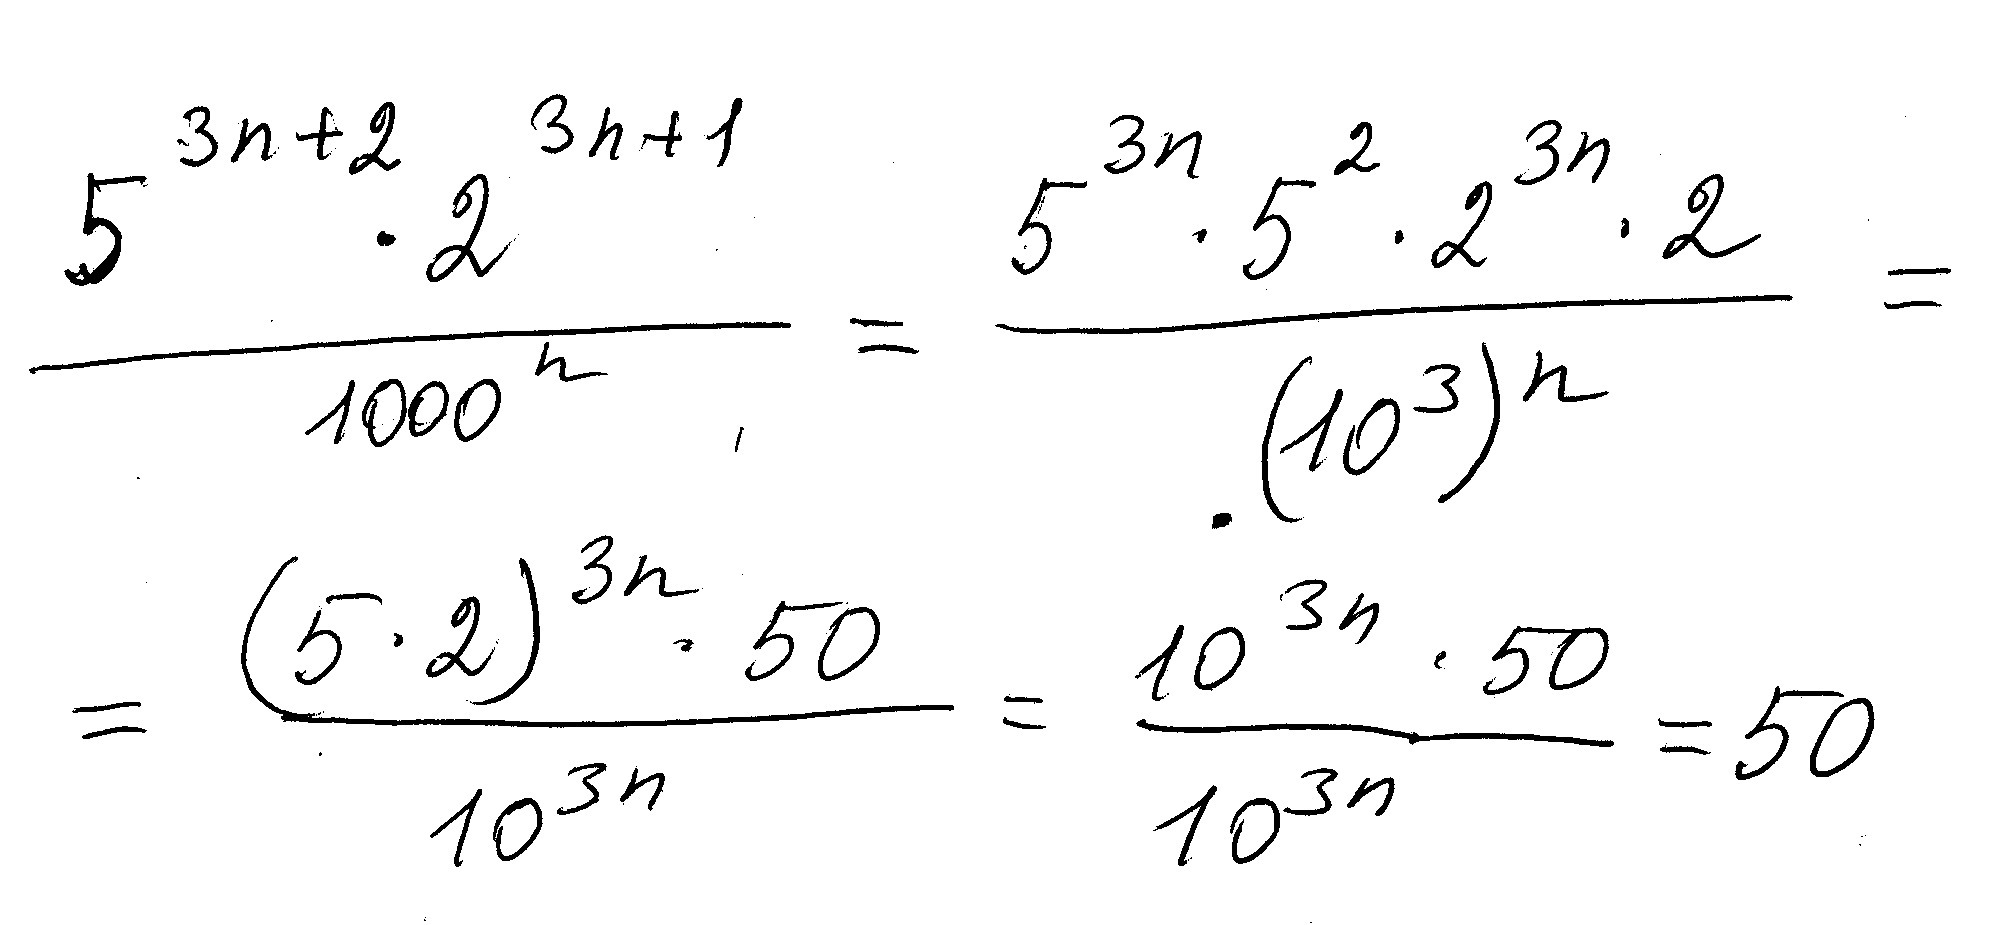 5^{3n+2} · 2^{3n+1} / 1000^n = 5^{3n} · 5^2 · 2^{3n} · 2 / (10^3)^n =
= (5 · 2)^{3n} · 50 / 10^{3n} = 10^{3n} · 50 / 10^{3n} = 50